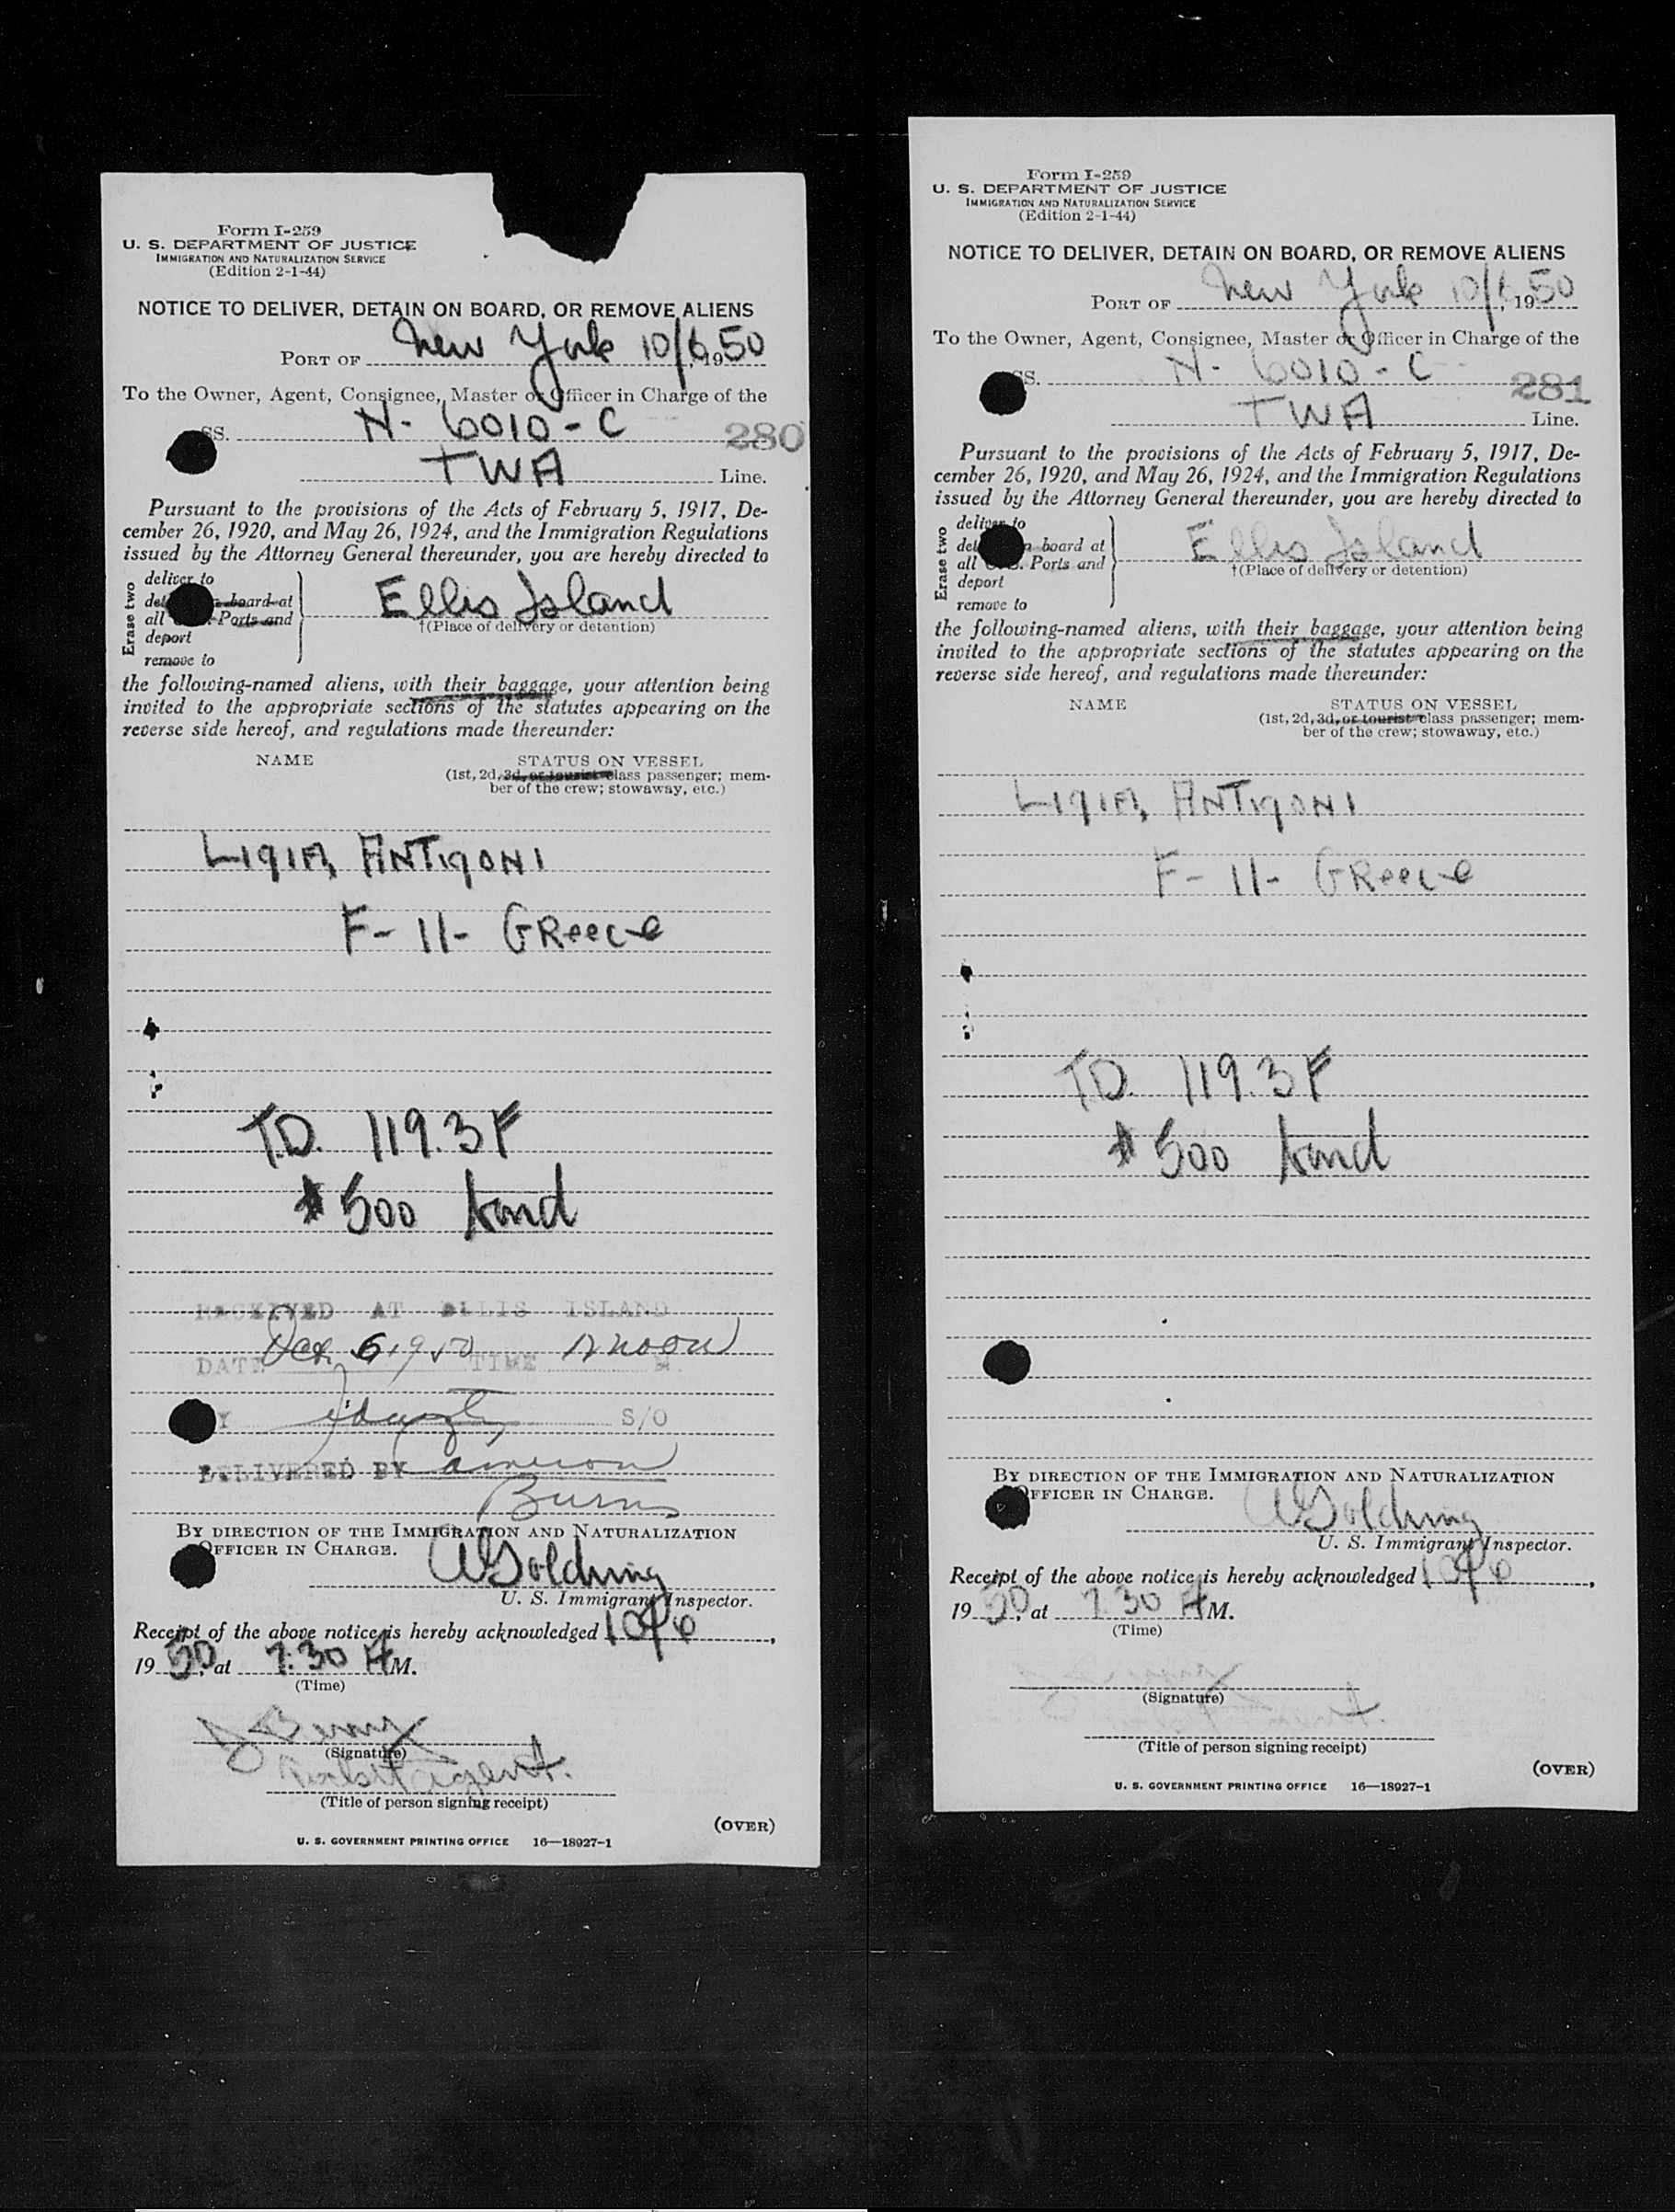 Form I-259
U. S. DEPARTMENT OF JUSTICE
IMMIGRATION AND NATURALIZATION SERVICE
(Edition 2-1-44)
NOTICE TO DELIVER, DETAIN ON BOARD, OR REMOVE ALIENS
PORT OF New York 10/6, 1950
To the Owner, Agent, Consignee, Master or Officer in Charge of the
SS. N-6010-C 280
TWA Line.
Pursuant to the provisions of the Acts of February 5, 1917, De-
cember 26, 1920, and May 26, 1924, and the Immigration Regulations
issued by the Attorney General thereunder, you are hereby directed to
Erase two
deliver to
board at
all Ports and
deport
remove to
Ellis Island
†(Place of delivery or detention)
the following-named aliens, with their baggage, your attention being
invited to the appropriate sections of the statutes appearing on the
reverse side hereof, and regulations made thereunder:
NAME STATUS ON VESSEL
(1st, 2d, 3d, or tourist class passenger; mem-
ber of the crew; stowaway, etc.)
LIGIA, ANTIGONI
F-11- GReece
T.D. 119.3F
$500 bond
RECEIVED AT ELLIS ISLAND
DATE 6, 1950 TIME 12 noon M.
S/O
DELIVERED BY Cameron
Burns
BY DIRECTION OF THE IMMIGRATION AND NATURALIZATION
OFFICER IN CHARGE.
Goldring
U. S. Immigrant Inspector.
Receipt of the above notice is hereby acknowledged 10/6,
1950, at 7:30 A M.
(Time)
(Signature)
Agent.
(Title of person signing receipt)
(OVER)
U. S. GOVERNMENT PRINTING OFFICE 16—18927-1
Form I-259
U. S. DEPARTMENT OF JUSTICE
IMMIGRATION AND NATURALIZATION SERVICE
(Edition 2-1-44)
NOTICE TO DELIVER, DETAIN ON BOARD, OR REMOVE ALIENS
PORT OF New York 10/6, 1950
To the Owner, Agent, Consignee, Master or Officer in Charge of the
SS. N-6010-C 281
TWA Line.
Pursuant to the provisions of the Acts of February 5, 1917, De-
cember 26, 1920, and May 26, 1924, and the Immigration Regulations
issued by the Attorney General thereunder, you are hereby directed to
Erase two
deliver to
board at
all Ports and
deport
remove to
Ellis Island
†(Place of delivery or detention)
the following-named aliens, with their baggage, your attention being
invited to the appropriate sections of the statutes appearing on the
reverse side hereof, and regulations made thereunder:
NAME STATUS ON VESSEL
(1st, 2d, 3d, or tourist class passenger; mem-
ber of the crew; stowaway, etc.)
LIGIA, ANTIGONI
F-11- GReece
T.D. 119.3F
$500 bond
BY DIRECTION OF THE IMMIGRATION AND NATURALIZATION
OFFICER IN CHARGE.
Goldring
U. S. Immigrant Inspector.
Receipt of the above notice is hereby acknowledged 10/6,
1950, at 7.30 A M.
(Time)
(Signature)
(Title of person signing receipt)
(OVER)
U. S. GOVERNMENT PRINTING OFFICE 16—18927-1